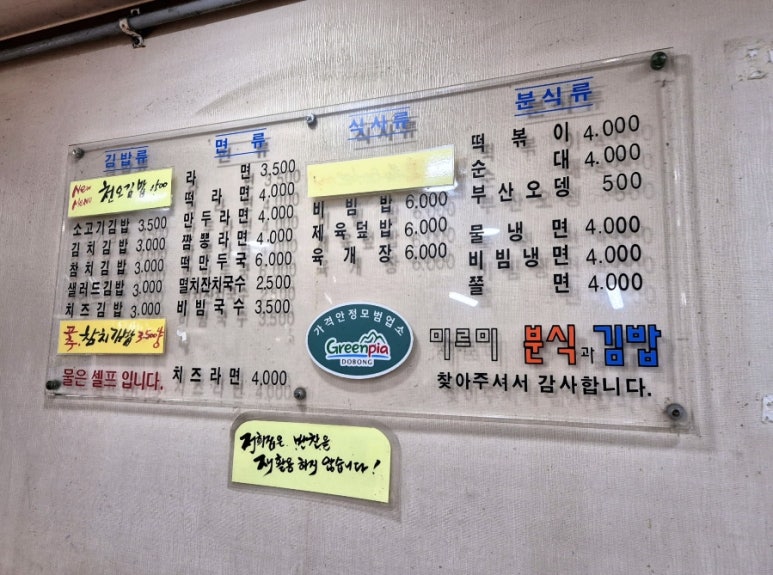 김밥류
New
MeNU
천오김밥 1500
소고기김밥 3.500
김치김밥 3.000
참치김밥 3.000
샐러드김밥 3.000
치즈김밥 3.000
참치김밥 3.500냥
물은 셀프 입니다.
면류
라면 3.500
떡라면 4.000
만두라면 4.000
짬뽕라면 4.000
떡만두국 6.000
멸치잔치국수 2.500
비빔국수 3.500
치즈라면 4.000
식사류
비빔밥 6.000
제육덮밥 6.000
육개장 6.000
분식류
떡볶이 4.000
순대 4.000
부산오뎅 500
물냉면 4.000
비빔냉면 4.000
쫄면 4.000
가격안정모범업소
Greenpia
DOBONG
미르미 분식과 김밥
찾아주셔서 감사합니다.
저희집은 반찬을
재활용 하지 않습니다!